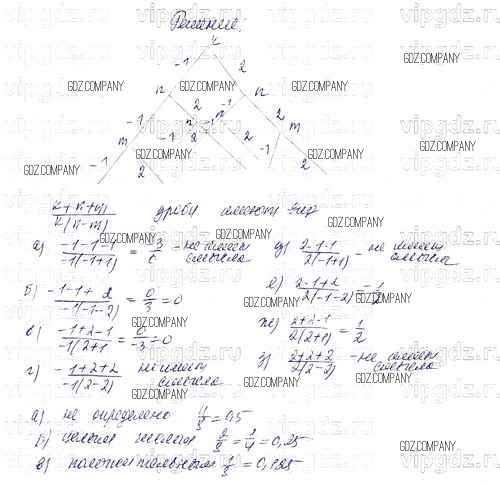 Решение:
к
-1 2
n n
-1 2 -1 2
m n n m
-1 2 -1 2 -1 2 -1 2
(к+n+m)/(к(n-m)) дроби имеют вид
а) (-1-1-1)/(-1(-1+1) = 3/0 - не имеет смысла
д) (2-1-1)/(2(-1+1) - не имеет смысла
б) (-1-1+2)/(-1(-1-2) = 0/3 = 0
е) (2-1+2)/(2(-1-2) = -1/2
в) (-1+2-1)/(-1(2+1) = 0/-3 = 0
ж) (2+2-1)/(2(2+1) = 1/2
г) (-1+2+2)/(-1(2-2) не имеет смысла
з) (2+2+2)/(2(2-2) - не имеет смысла
а) не определено 4/8 = 0,5
б) целым числом 2/8 = 1/4 = 0,25
в) положительным 1/8 = 0,125
vipgdz.ru
GDZ.COMPANY